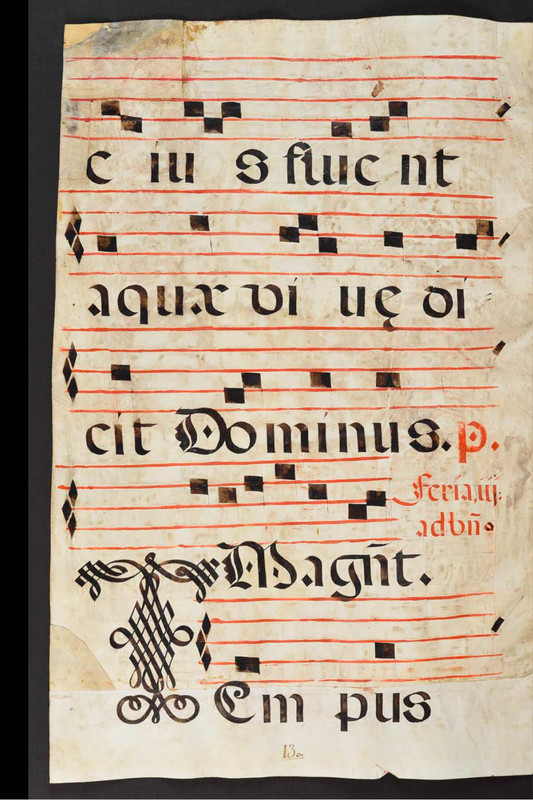 e iu s flue nt
aquæ vi uę di
cit Dominus. p.
Feria.iij.
ad bñ.
Magñt.
TEm pus
13.